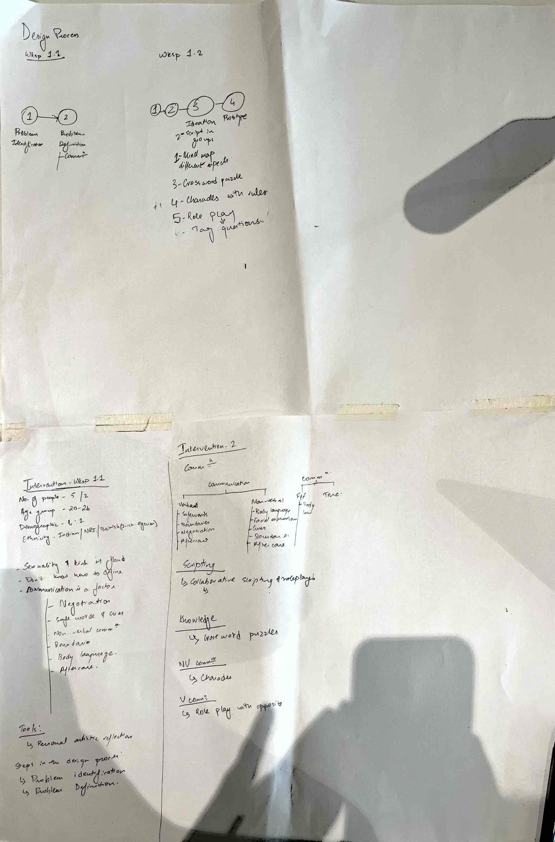 Design Process
Wksp 1.1
1
2
Problem
Identification
Problem
Definition
Wksp 1.2
1
2
3
4
Ideation
Prototype
2- Script in
groups
1- Mind map
different aspects
3- Crossword puzzle
4- Charades with rules
5- Role play
Tag questions
Intervention - Wksp 1.1
No. of people - 5 / 2
Age group - 20-26
Demographic -
Ethnicity - Indian / NRI /
- Sexuality & kink is fluid
- Don't know how to define
- Communication is a factor
- Negotiation
- Safe words & cues
- Non verbal commⁿ
- Boundaries
- Body language
- Aftercare
Tools:
↳ Personal artistic reflection
Steps in the design process
↳ Problem identification
↳ Problem Definition.
Intervention - 2
Commⁿ
Communication
Verbal
- Safewords
- Boundaries
- Negotiation
- Aftercare
Non-verbal
- Body language
- Facial expression
- Cues
- Aftercare
Commⁿ
Tone
Scripting
↳ Collaborative scripting & roleplaying
Knowledge
↳ Cross word puzzles
NV commⁿ
↳ Charades
V commⁿ
↳ Role play with opposite